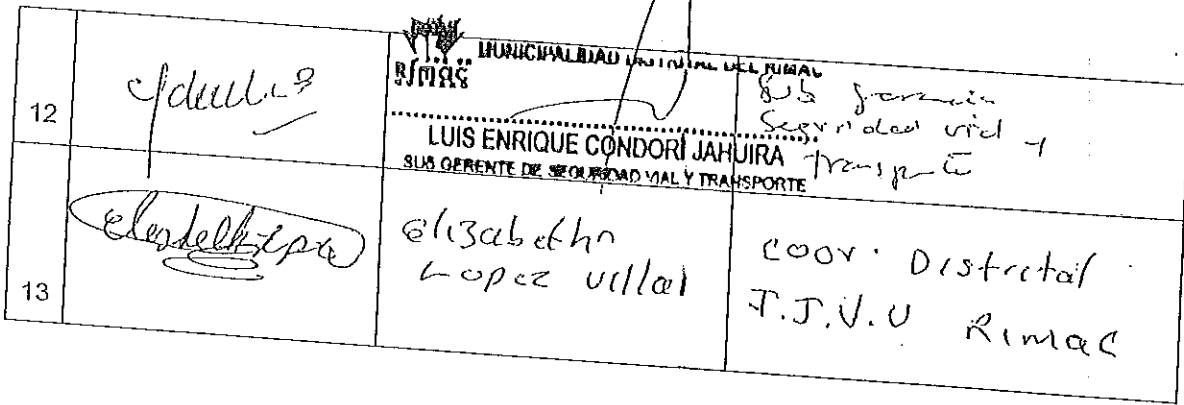 12
RÍMAC
MUNICIPALIDAD DISTRITAL DEL RIMAC
LUIS ENRIQUE CONDORI JAHUIRA
SUB GERENTE DE SEGURIDAD VIAL Y TRANSPORTE
Sub gerencia
Seguridad vial y
transporte
13
elizabethn
Lopez villal
coor. Distrital
J.J.V.U Rimac